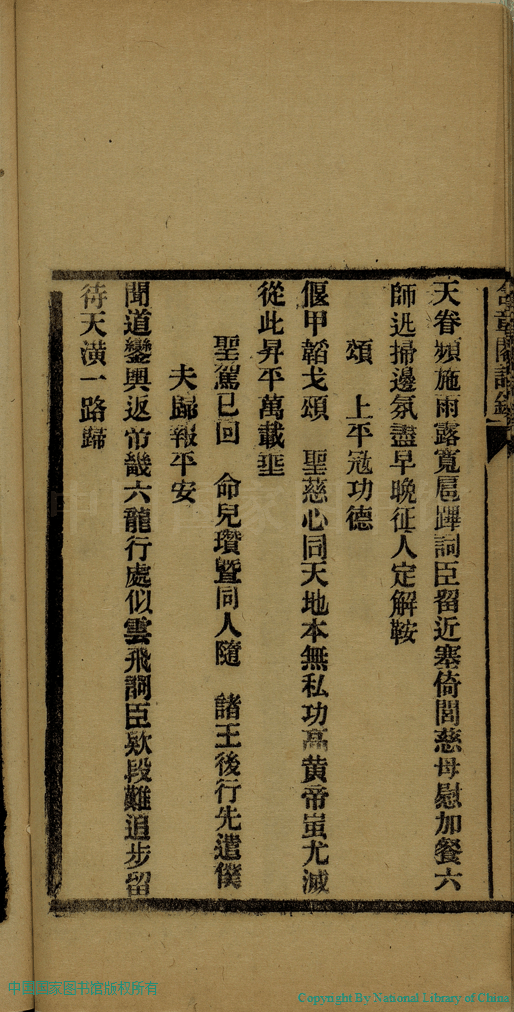 天眷頻施雨露寬扈蹕詞臣留近塞倚閭慈母慰加餐六
師迅掃邊氛盡早晚征人定解鞍
頌　上平冦功德
偃甲韜戈頌　聖慈心同天地本無私功高黃帝蚩尤滅
從此昇平萬載垂
聖駕已回　命兒瓚曁同人隨　諸王後行先遣僕
夫歸報平安
聞道鑾輿返帝畿六龍行處似雲飛詞臣欵段難追步留
待天潢一路歸
中国国家图书馆版权所有
Copyright By National Library of China